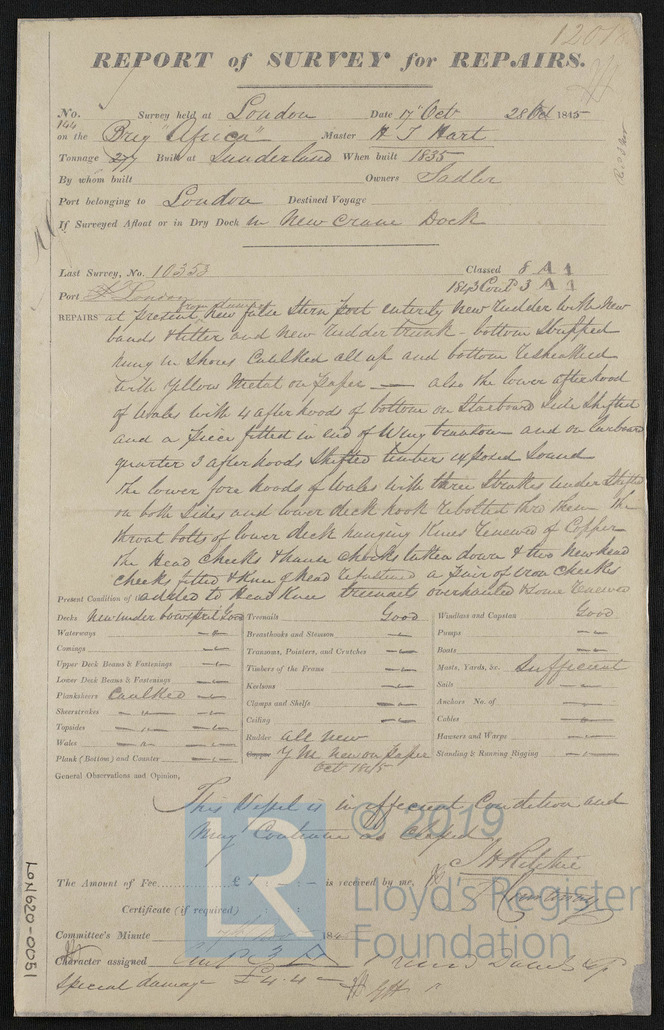 REPORT of SURVEY for REPAIRS.
No. 144 Survey held at London Date 17 Oct 28 Oct 1845
on the Brig "Africa" Master H T Hart
Tonnage 277 Built at Sunderland When built 1835
By whom built Owners Sadler
Port belonging to London Destined Voyage
If Surveyed Afloat or in Dry Dock In New Crane Dock
Last Survey, No. 10353 Classed 8 A 1
Port London 1843 Cont 3 A 1
REPAIRS at present New false Stern post entirely New Rudder with New
bands & tiller and new Rudder trunk - bottom Stripped
hung in Shores Caulked all up and bottom resheathed
with Yellow Metal on paper — also the lower after hood
of Wales with 4 after hoods of bottom on Starboard Side Shifted
and a piece fitted in end of Wing transom and on larboard
quarter 3 after hoods Shifted timbers exposed Sound
The lower fore hoods of Wales with three Strakes under Shifted
on both Sides and lower deck hook rebolted thro them the
throat bolts of lower deck hanging Knees renewed of Copper
The Head Cheeks & hause chocks taken down & two new head
cheeks fitted & Knee of head refastened a pair of iron cheeks
added to Head Knee treenails overhauled & some renewed
Present Condition of the
Decks New under bowsprit Good Treenails Good Windlass and Capstan Good
Waterways Breasthooks and Stemson Pumps
Comings Transoms, Pointers, and Crutches Boats
Upper Deck Beams & Fastenings Timbers of the Frame Masts, Yards, &c. Sufficient
Lower Deck Beams & Fastenings Keelsons Sails
Planksheers Caulked Clamps and Shelfs Anchors No. of
Sheerstrakes Ceiling Cables
Topsides Rudder all new Hawsers and Warps
Wales Copper Y M New on paper Standing & Running Rigging
Plank (Bottom) and Counter Oct 1845
General Observations and Opinion,
This Vessel is in efficient Condition and
May Continue as Classed
The Amount of Fee £ 1 : : — is received by me, J H Ritchie
Certificate (if required) : :
Committee's Minute 184
Character assigned
special damage £4.4
LON620-0051
© 2019
LR
Lloyd's Register
Foundation